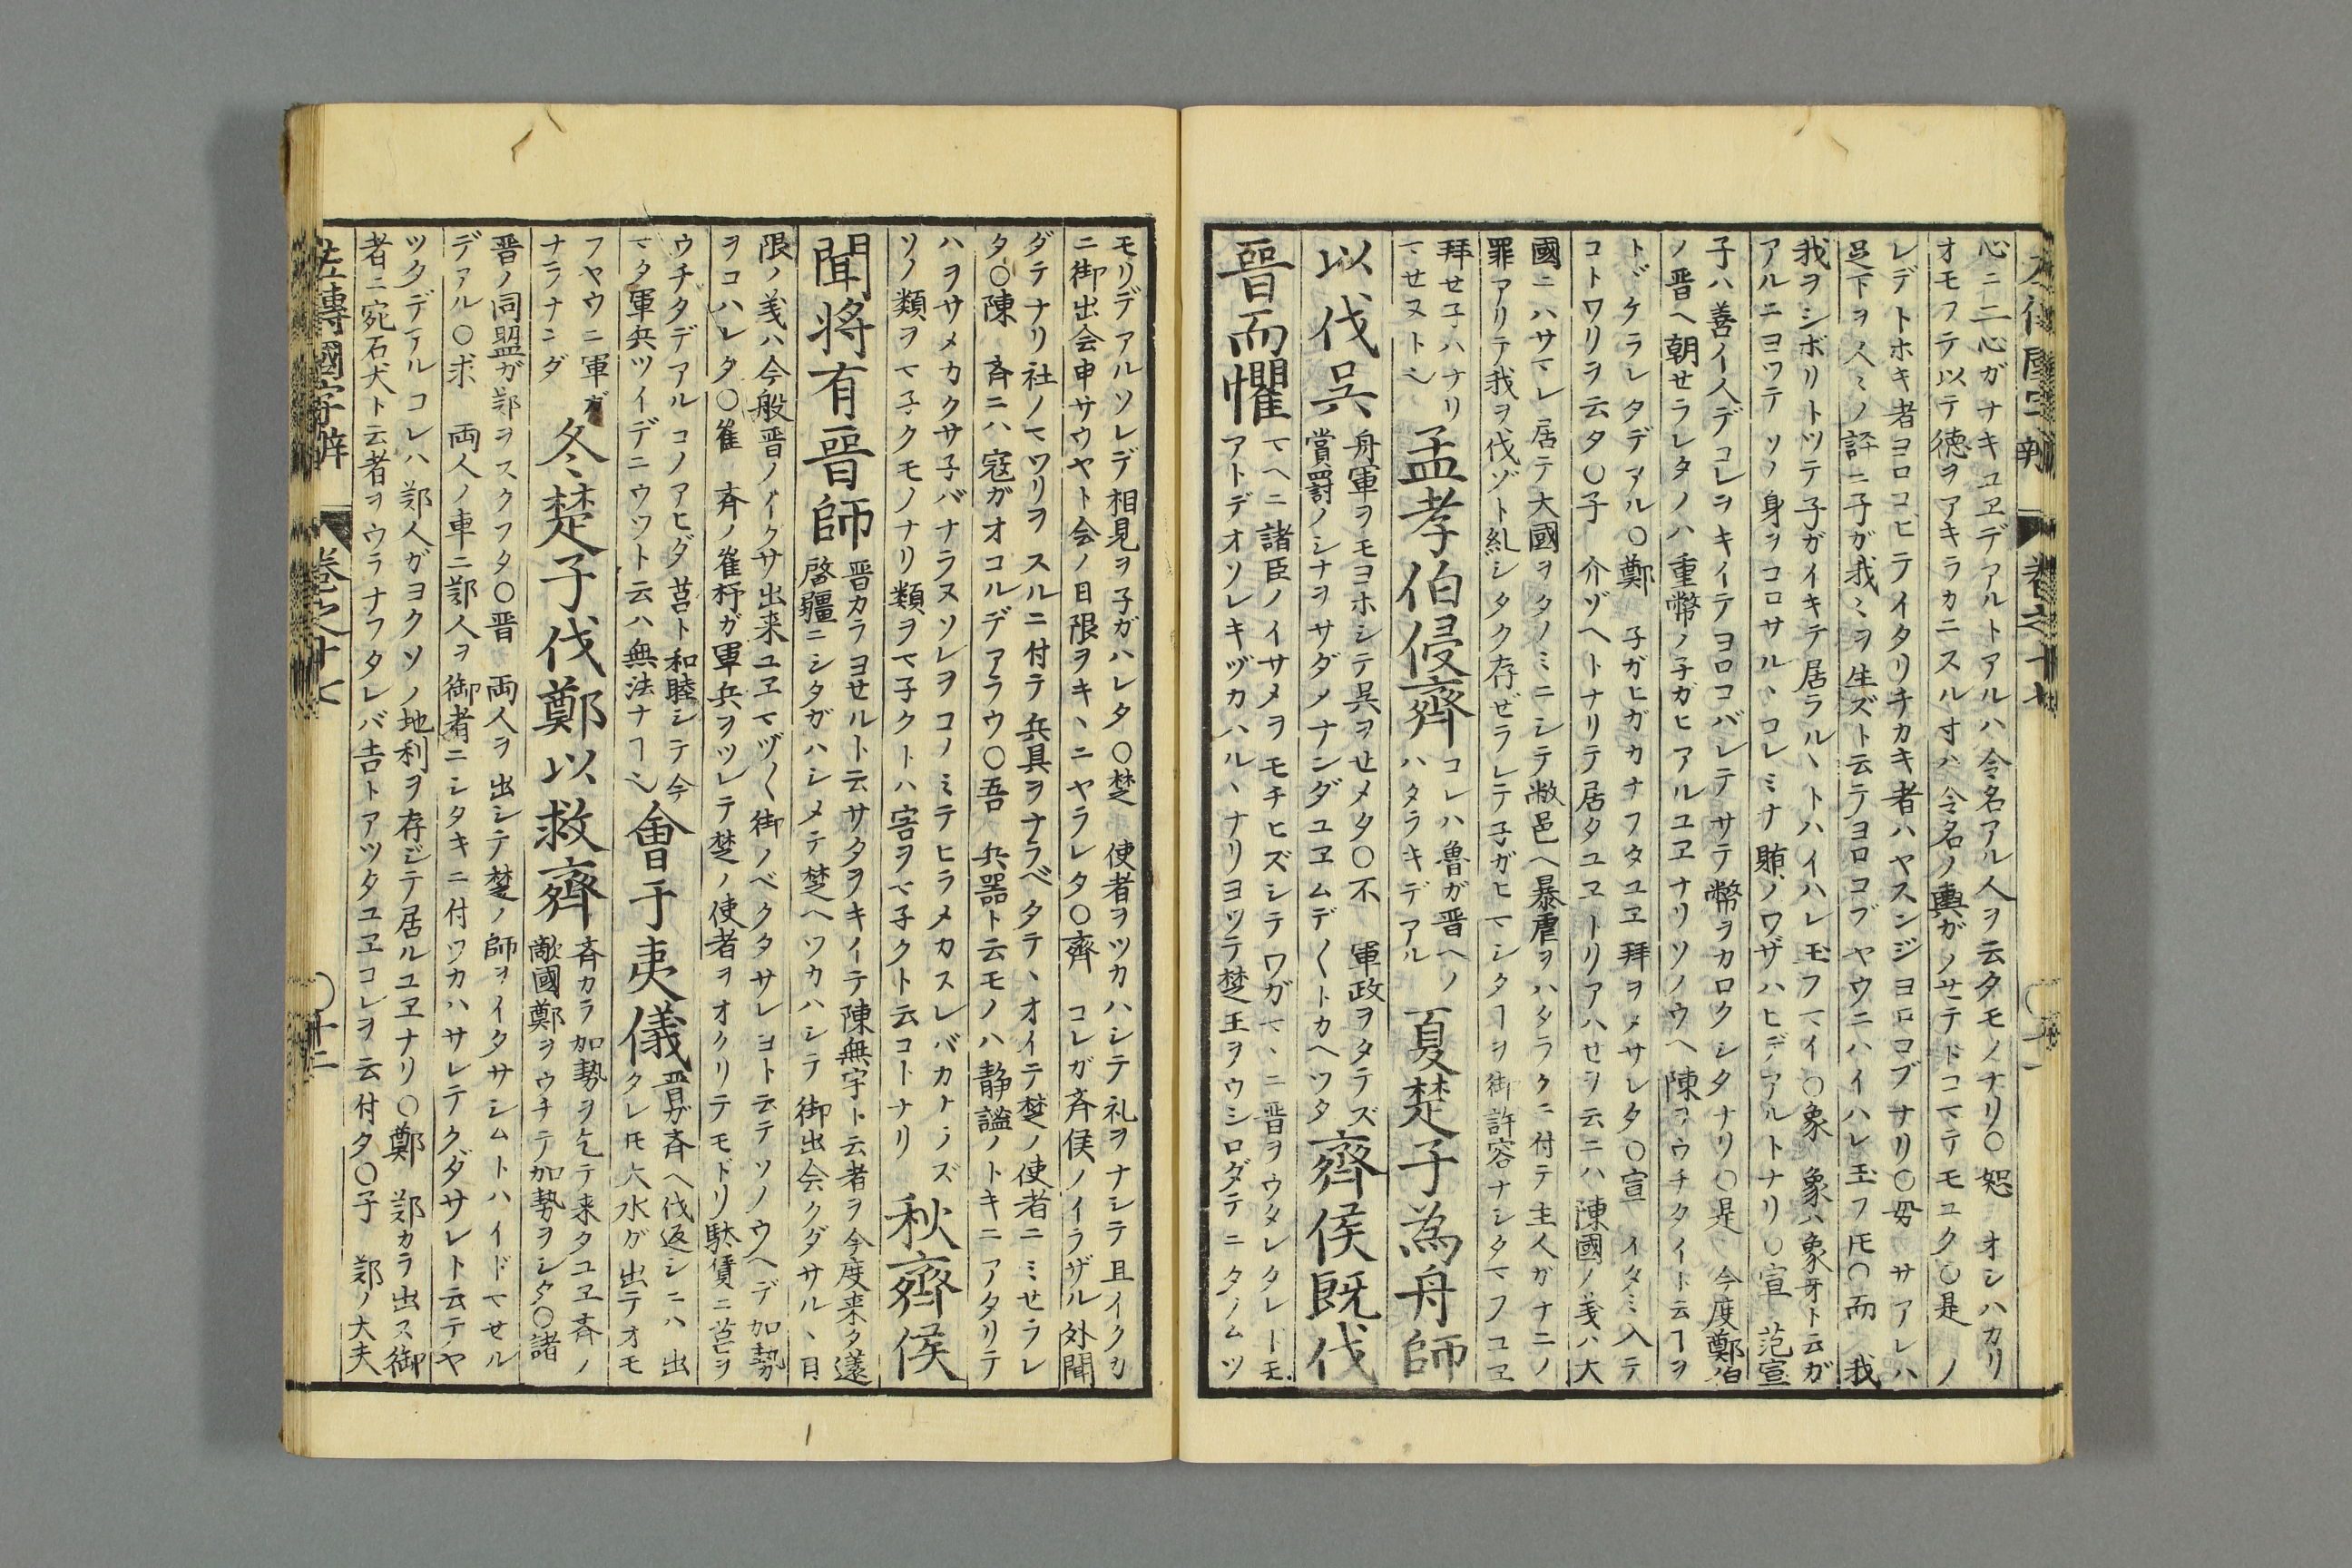 左傳國字辯 巻之十七 〇十一
心ニ二心ガナキユヱデアルトアルハ令名アル人ヲ云タモノナリ〇恕 オシハカリ
オモフテ以テ徳ヲアキラカニスル寸ハ令名ノ輿ガノせテドコマテモユク〇是 ノ
レデトホキ者ヨロコヒテイタリチカキ者ハヤスンジヨロコブナリ〇毋 サアレハ
足下ヲ人ミノ評ニ子ガ我ミヲ生ズト云テヨロコブヤウニハイハレ玉フ𪜈〇而 我
我ヲシボリトツテ子ガイキテ居ラルヽトハイハレ玉フマイ〇象 象ハ象牙ト云ガ
アルニヨツテソノ身ヲコロサルヽコレミナ賄ノワザハヒデアルトナリ〇宣 范宣
子ハ善イ人デコレヲキイテヨロコバレテサテ幣ヲカロクシタナリ〇是 今度鄭伯
ノ晋ヘ朝せラレタノハ重幣ノ子ガヒアルユヱナリソノウヘ陳ヲウチタイト云ヿヲ
トヾケラレタデアル〇鄭 子ガヒガカナフタユヱ拜ヲメサレタ〇宣 イタミ入テ
コトワリヲ云タ〇子 介ヅヘトナリテ居タユヱトリアハせヲ云ニハ陳國ノ義ハ大
國ニハサマレ居テ大國ヲタノミニシテ敝邑ヘ暴虐ヲハタラクニ付テ主人ガナニノ
罪アリテ我ヲ伐ゾト糺シタク存ぜラレテ子ガヒマシタヿヲ御許容ナシタマフユヱ
拜せ子ハナリ
マせヌトシ
孟孝伯侵齊
コレハ魯ガ晋ヘノ
ハタラキデアル
夏楚子為舟師
以伐呉
舟軍ヲモヨホシテ呉ヲせメタ〇不 軍政ヲタテズ
賞罰ノシナヲサダメナンダユヱムデ〱トカヘツタ
齊侯既伐
晋而懼
マヘニ諸臣ノイサメヲモチヒズシテワガマヽニ晋ヲウタレタレトモ
アトデオソレキヅカハルヽナリヨツテ楚王ヲウシロダテニタノムツ
モリデアルソレデ相見ヲ子ガハレタ〇楚 使者ヲツカハシテ礼ヲナシテ且イクカ
ニ御出会申サウヤト会ノ日限ヲキヽニヤラレタ〇齊 コレガ斉侯ノイラザル外聞
ダテナリ社ノマツリヲスルニ付テ兵具ヲナラベタテヽオイテ楚ノ使者ニミせラレ
タ〇陳 斉ニハ寇ガオコルデアラウ〇吾 兵噐ト云モノハ静謐ノトキニアタリテ
ハヲサメカクサ子バナラヌソレヲコノミテヒラメカスレバカナラズ
ソノ類ヲマ子クモノナリ類ヲマ子クトハ害ヲマ子クト云コトナリ
秋齊侯
聞将有晋師
晋カラヨせルト云サタヲキイテ陳無宇ト云者ヲ今度来タ薳
啓彊ニシタガハシメテ楚ヘツカハシテ御出会クダサルヽ日
限ノ義ハ今般晋ノイクサ出来ユヱマヅ〱御ノベクタサレヨト云テソノウヘデ加勢
ヲコハレタ〇崔 斉ノ崔杼ガ軍兵ヲツレテ楚ノ使者ヲオクリテモドリ駄賃ニ莒ヲ
ウチタデアルコノアヒダ莒ト和睦シテ今
マタ軍兵ツイデニウツト云ハ無法ナヿシ
會于夷儀
晋ガ斉ヘ伐返シニハ出
タレ𪜈大水ガ出テオモ
フヤウニ軍ガ
ナラナンダ
冬楚子伐鄭以救齊
斉カラ加勢ヲ乞テ来タユヱ斉ノ
敵國鄭ヲウチテ加勢ヲシタ〇諸
晋ノ同盟ガ鄭ヲスクフタ〇晋 両人ヲ出シテ楚ノ師ヲイタサシムトハイドマせル
デアル〇求 両人ノ車ニ鄭人ヲ御者ニシタキニ付ツカハサレテクダサレト云テヤ
ツタデアルコレハ鄭人ガヨクソノ地利ヲ存ジテ居ルユヱナリ〇鄭 鄭カラ出ス御
者ニ宛石犬ト云者ヲウラナフタレバ吉トアツタユヱコレヲ云付タ〇子 鄭ノ大夫
左傳國字辯 巻之十七 〇十二